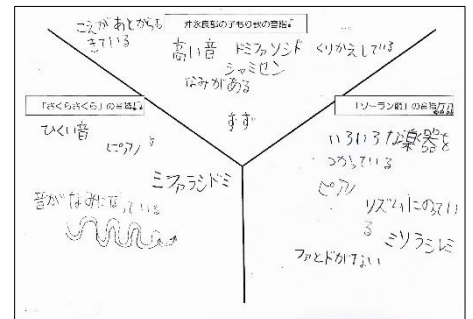 沖永良部の子もり唄の音階
こえがあとからも
きている
高い音 ドミファソシド くりかえしている
シャミセン
なみがある
すず
「さくらさくら」の音階
ひくい音
ピアノ
ミファラシドミ
音がなみになっている
「ソーラン節」の音階
いろいろな楽器を
つかっている
ピアノ
リズムにのってい
る
ミソラシレミ
ファとドがない